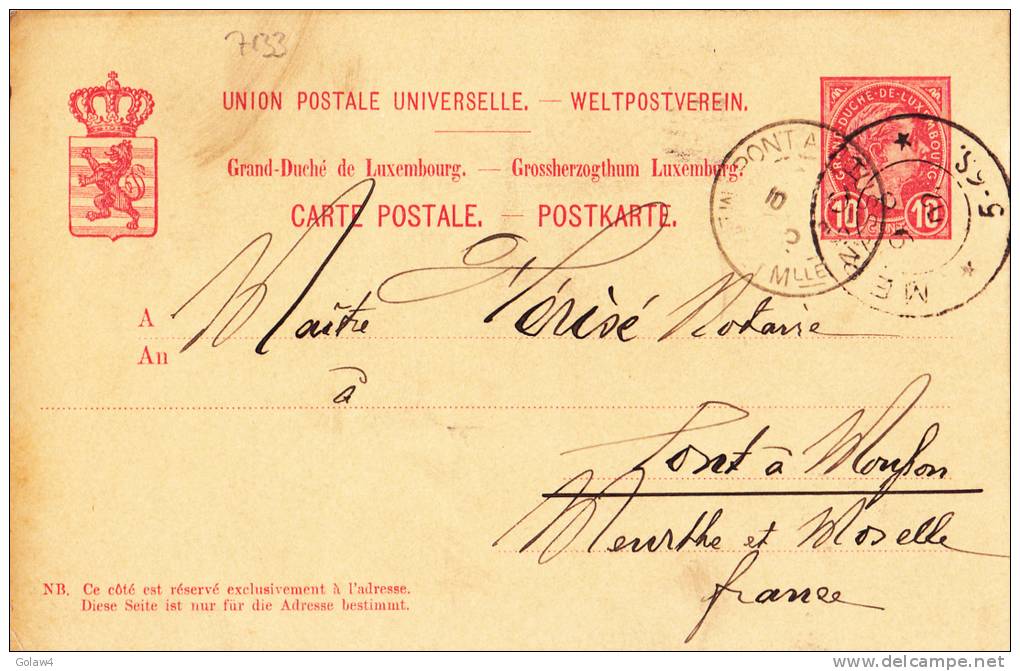 7133
UNION POSTALE UNIVERSELLE. — WELTPOSTVEREIN.
Grand-Duché de Luxembourg. — Grossherzogthum Luxemburg.
CARTE POSTALE. — POSTKARTE.
GRAND-DUCHÉ-DE-LUXEMBOURG
10 10
PONT A
MLLE
5
A Maître Hérisé Notaire
An
à
Pont à Mousson
Meurthe et Moselle
france
NB. Ce côté est réservé exclusivement à l'adresse.
Diese Seite ist nur für die Adresse bestimmt.
Golaw4
www.delcampe.net